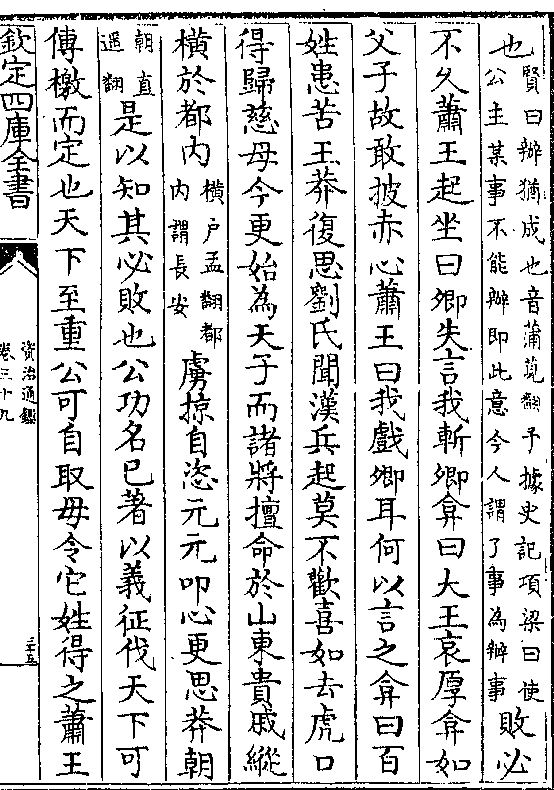 也賢曰辦猶成也音蒲莧翻予據史記項梁曰使
公主某事不能辦即此意今人謂了事為辦事敗必
不久蕭王起坐曰卿失言我斬卿弇曰大王哀厚弇如
父子故敢披赤心蕭王曰我戲卿耳何以言之弇曰百
姓患苦王莽復思劉氏聞漢兵起莫不歡喜如去虎口
得歸慈母今更始為天子而諸將擅命於山東貴戚縱
橫於都內橫户孟翻都
內謂長安虜掠自恣元元叩心更思莽朝
朝直
遥翻是以知其必敗也公功名已著以義征伐天下可
傳檄而定也天下至重公可自取毋令它姓得之蕭王
欽定四庫全書
資治通鑑
卷三十九
三十五